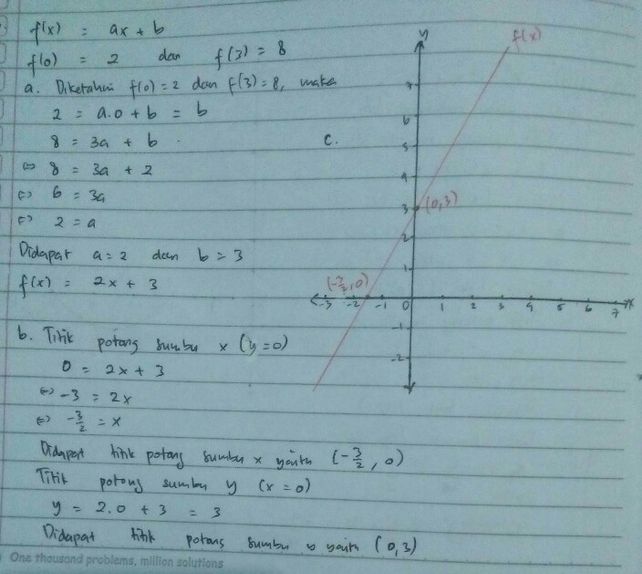 f(x) = ax + b
f(0) = 2 dan f(3) = 8
a. Diketahui f(0)=2 dan f(3)=8, maka
2 = a.0 + b = b
8 = 3a + b
⇔ 8 = 3a + 2
⇔ 6 = 3a
⇔ 2 = a
Didapat a=2 dan b=3
f(x) = 2x + 3
b. Titik potong sumbu x (y=0)
0 = 2x + 3
⇔ -3 = 2x
⇔ -3/2 = x
Didapat titik potong sumbu x yaitu (-3/2, 0)
Titik potong sumbu y (x=0)
y = 2.0 + 3 = 3
Didapat titik potong sumbu y yaitu (0,3)
c.
y
f(x)
7
6
5
4
3 (0,3)
2
1
(-3/2, 0)
-3 -2 -1 0 1 2 3 4 5 6 7 x
-1
-2
One thousand problems, million solutions